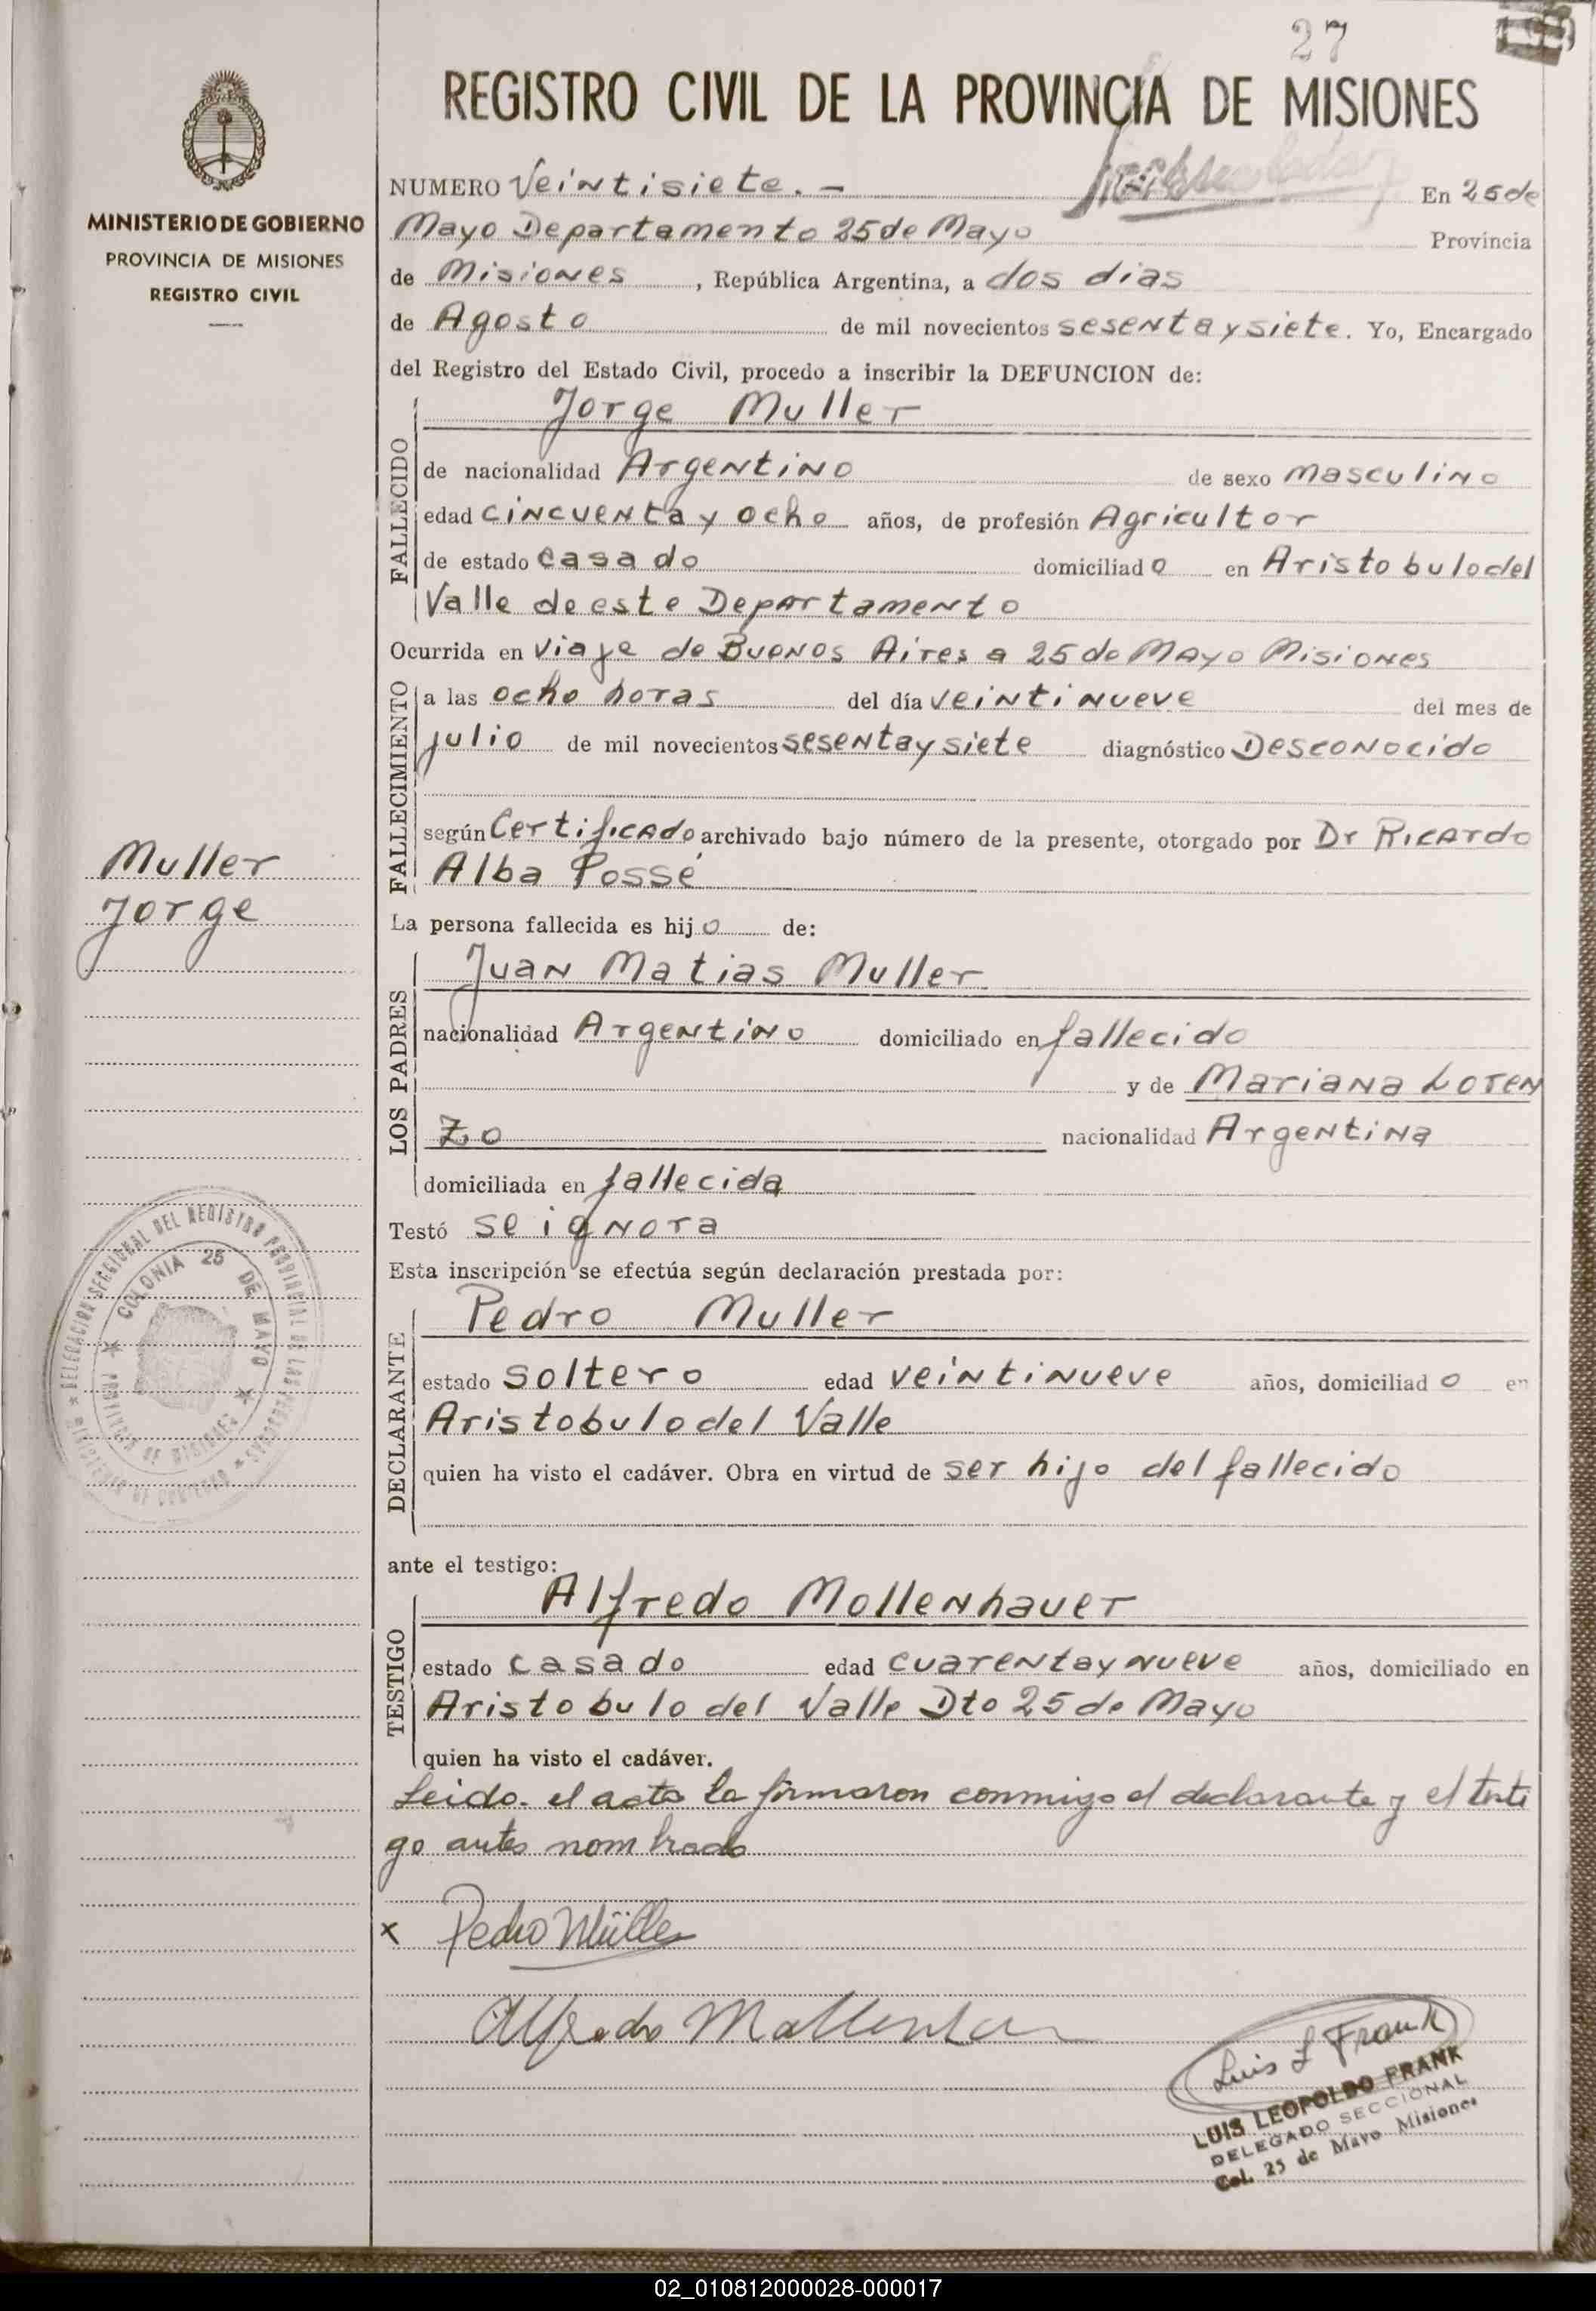 27
REGISTRO CIVIL DE LA PROVINCIA DE MISIONES
MINISTERIO DE GOBIERNO
PROVINCIA DE MISIONES
REGISTRO CIVIL
NUMERO Veintisiete. - En 25 de
Mayo Departamento 25 de Mayo Provincia
de Misiones, República Argentina, a dos dias
de Agosto de mil novecientos sesenta y siete. Yo, Encargado
del Registro del Estado Civil, procedo a inscribir la DEFUNCION de:
FALLECIDO
Jorge Muller
de nacionalidad Argentino de sexo masculino
edad cincuenta y ocho años, de profesión Agricultor
de estado casado domiciliado en Aristobulo del
Valle de este Departamento
Ocurrida en viaje de Buenos Aires a 25 de Mayo Misiones
FALLECIMIENTO
a las ocho horas del día veintinueve del mes de
julio de mil novecientos sesenta y siete diagnóstico Desconocido
según Certificado archivado bajo número de la presente, otorgado por Dr Ricardo
Alba Possé
Muller
Jorge
La persona fallecida es hijo de:
LOS PADRES
Juan Matias Muller
nacionalidad Argentino domiciliado en fallecido
y de Mariana Loren
zo nacionalidad Argentina
domiciliada en fallecida
Testó se ignora
Esta inscripción se efectúa según declaración prestada por:
DECLARANTE
Pedro Muller
estado soltero edad veintinueve años, domiciliado en
Aristobulo del Valle
quien ha visto el cadáver. Obra en virtud de ser hijo del fallecido
DELEGACION SECCIONAL DEL REGISTRO PROVINCIAL DE LAS PERSONAS
MINISTERIO DE GOBIERNO
COLONIA 25 DE MAYO
PROVINCIA DE MISIONES
ante el testigo:
TESTIGO
Alfredo Mollenhauer
estado casado edad cuarenta y nueve años, domiciliado en
Aristobulo del Valle Dto 25 de Mayo
quien ha visto el cadáver.
Leido el acta la firmaron conmigo el declarante y el testi
go antes nombrado
x Pedro Müller
Alfredo Mollenhauer
Luis L Frank
LUIS LEOPOLDO FRANK
DELEGADO SECCIONAL
Col. 25 de Mayo Misiones
02_010812000028-000017